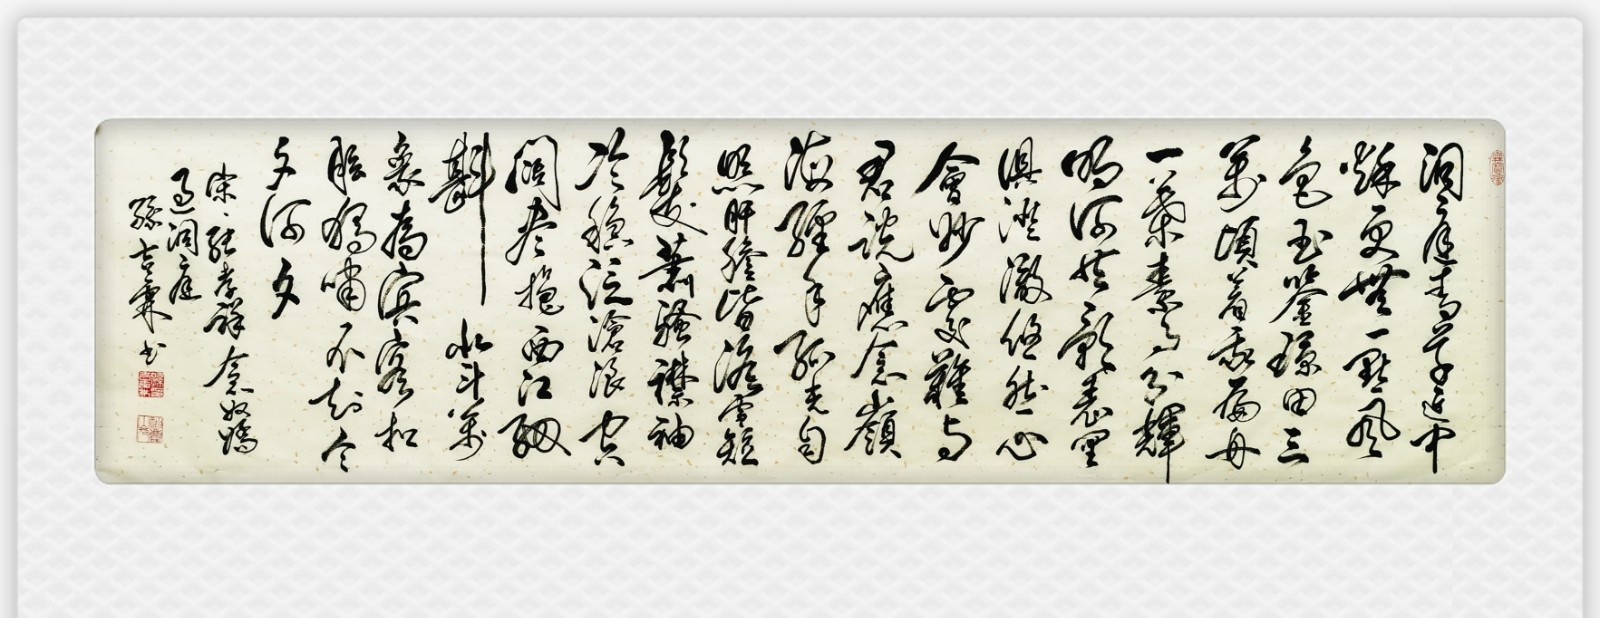 洞庭青草近中
秋更無一點風
色玉鑒瓊田三
萬頃著我扁舟
一葉素月分輝
明河共影表裏
俱澄澈悠然心
會妙處難與
君說應念嶺
海經年孤光自
照肝膽皆冰雪短
髮蕭騷襟袖
冷穩泛滄浪空
闊盡挹西江細
斟北斗萬
象為賓客扣
舷獨嘯不知今
夕何夕
宋、張孝祥念奴嬌
過洞庭
孫吉霖书